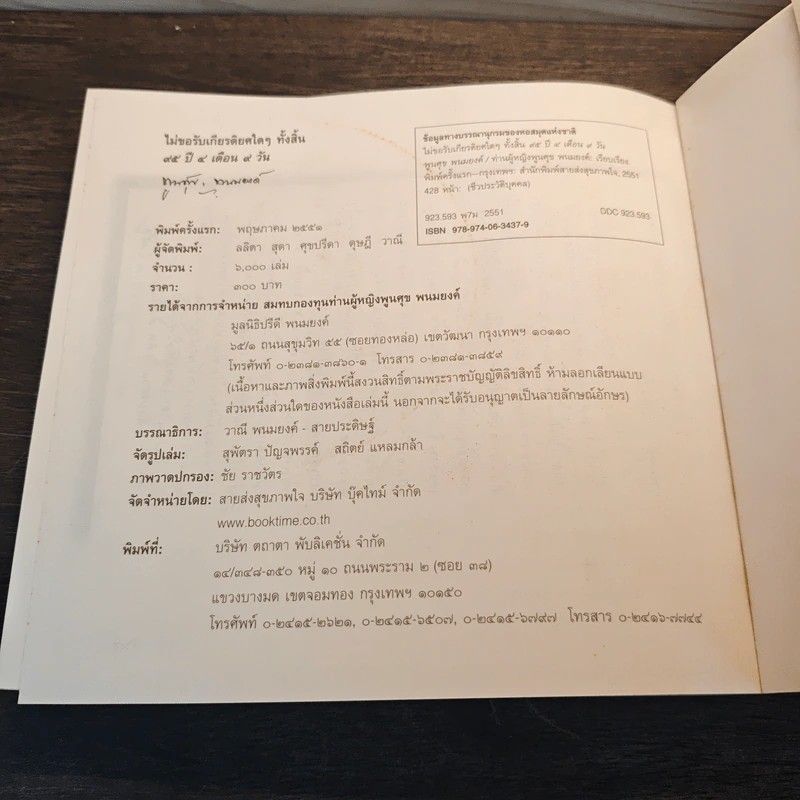 ไม่ขอรับเกียรติยศใดๆ ทั้งสิ้น
๙๕ ปี ๔ เดือน ๙ วัน
พูนศุข พนมยงค์
ข้อมูลทางบรรณานุกรมของหอสมุดแห่งชาติ
ไม่ขอรับเกียรติยศใดๆ ทั้งสิ้น ๙๕ ปี ๔ เดือน ๙ วัน
พูนศุข พนมยงค์ / ท่านผู้หญิงพูนศุข พนมยงค์: เรียบเรียง
พิมพ์ครั้งแรก—กรุงเทพฯ: สำนักพิมพ์สายส่งสุขภาพใจ, 2551
428 หน้า: (ชีวประวัติบุคคล)
923.593 พ7ม 2551 DDC 923.593
ISBN 978-974-06-3437-9
พิมพ์ครั้งแรก: พฤษภาคม ๒๕๕๑
ผู้จัดพิมพ์: ลลิตา สุดา ศุขปรีดา ดุษฎี วาณี
จำนวน : ๖,๐๐๐ เล่ม
ราคา: ๓๐๐ บาท
รายได้จากการจำหน่าย สมทบกองทุนท่านผู้หญิงพูนศุข พนมยงค์
มูลนิธิปรีดี พนมยงค์
๖๕/๑ ถนนสุขุมวิท ๕๕ (ซอยทองหล่อ) เขตวัฒนา กรุงเทพฯ ๑๐๑๑๐
โทรศัพท์ ๐-๒๓๘๑-๓๘๖๐-๑ โทรสาร ๐-๒๓๘๑-๓๘๕๙
(เนื้อหาและภาพสิ่งพิมพ์นี้สงวนสิทธิ์ตามพระราชบัญญัติลิขสิทธิ์ ห้ามลอกเลียนแบบ
ส่วนหนึ่งส่วนใดของหนังสือเล่มนี้ นอกจากจะได้รับอนุญาตเป็นลายลักษณ์อักษร)
บรรณาธิการ: วาณี พนมยงค์ - สายประดิษฐ์
จัดรูปเล่ม: สุพัตรา ปัญจพรรค์ สถิตย์ แหลมกล้า
ภาพวาดปกรอง: ชัย ราชวัตร
จัดจำหน่ายโดย: สายส่งสุขภาพใจ บริษัท บุ๊คไทม์ จำกัด
www.booktime.co.th
พิมพ์ที่: บริษัท ตถาตา พับลิเคชั่น จำกัด
๑๔/๓๔๘-๓๕๐ หมู่ ๑๐ ถนนพระราม ๒ (ซอย ๓๘)
แขวงบางมด เขตจอมทอง กรุงเทพฯ ๑๐๑๕๐
โทรศัพท์ ๐-๒๔๑๕-๒๖๒๑, ๐-๒๔๑๕-๖๕๐๗, ๐-๒๔๑๕-๖๗๙๗ โทรสาร ๐-๒๔๑๖-๗๗๔๔